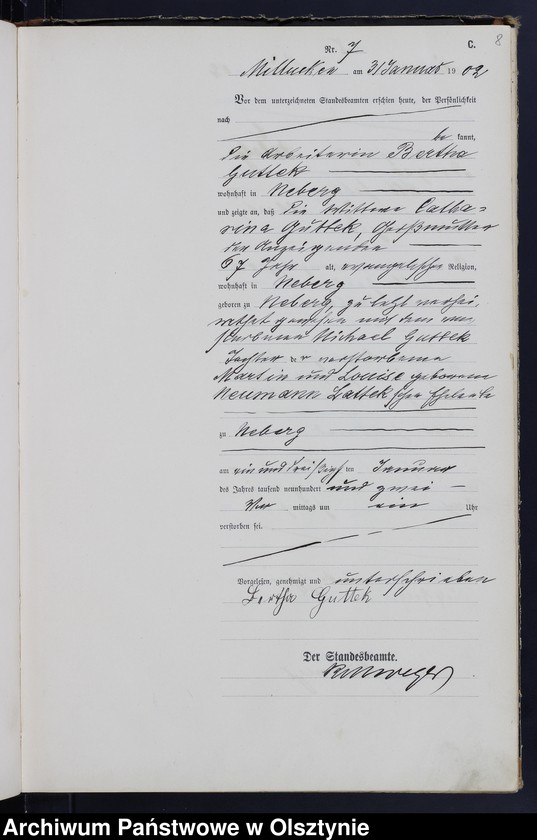 8
C.
Nr. 7
Millucken am 31 Januar 1902
Vor dem unterzeichneten Standesbeamten erschien heute, der Persönlichkeit
nach
be kannt,
die Arbeiterin Bertha
Guttek
wohnhaft in Neberg
und zeigte an, daß die Wittwe Catha=
rina Guttek, Großmutter
der Anzeigenden
67 Jahr alt, evangelischer Religion,
wohnhaft in Neberg
geboren zu Neberg, zu letzt verhei,
rathet gewesen mit dem ver,
storbenen Michael Guttek
Tochter der verstorbenen
Martin und Louise geborene
Neumann Lattek'schen Eheleute
zu Neberg
am ein und dreißigsten Januar
des Jahres tausend neunhundert und zwei
Vor mittags um ein Uhr
verstorben sei.
Vorgelesen, genehmigt und unterschrieben
Bertha Guttek
Der Standesbeamte.
Archiwum Państwowe w Olsztynie